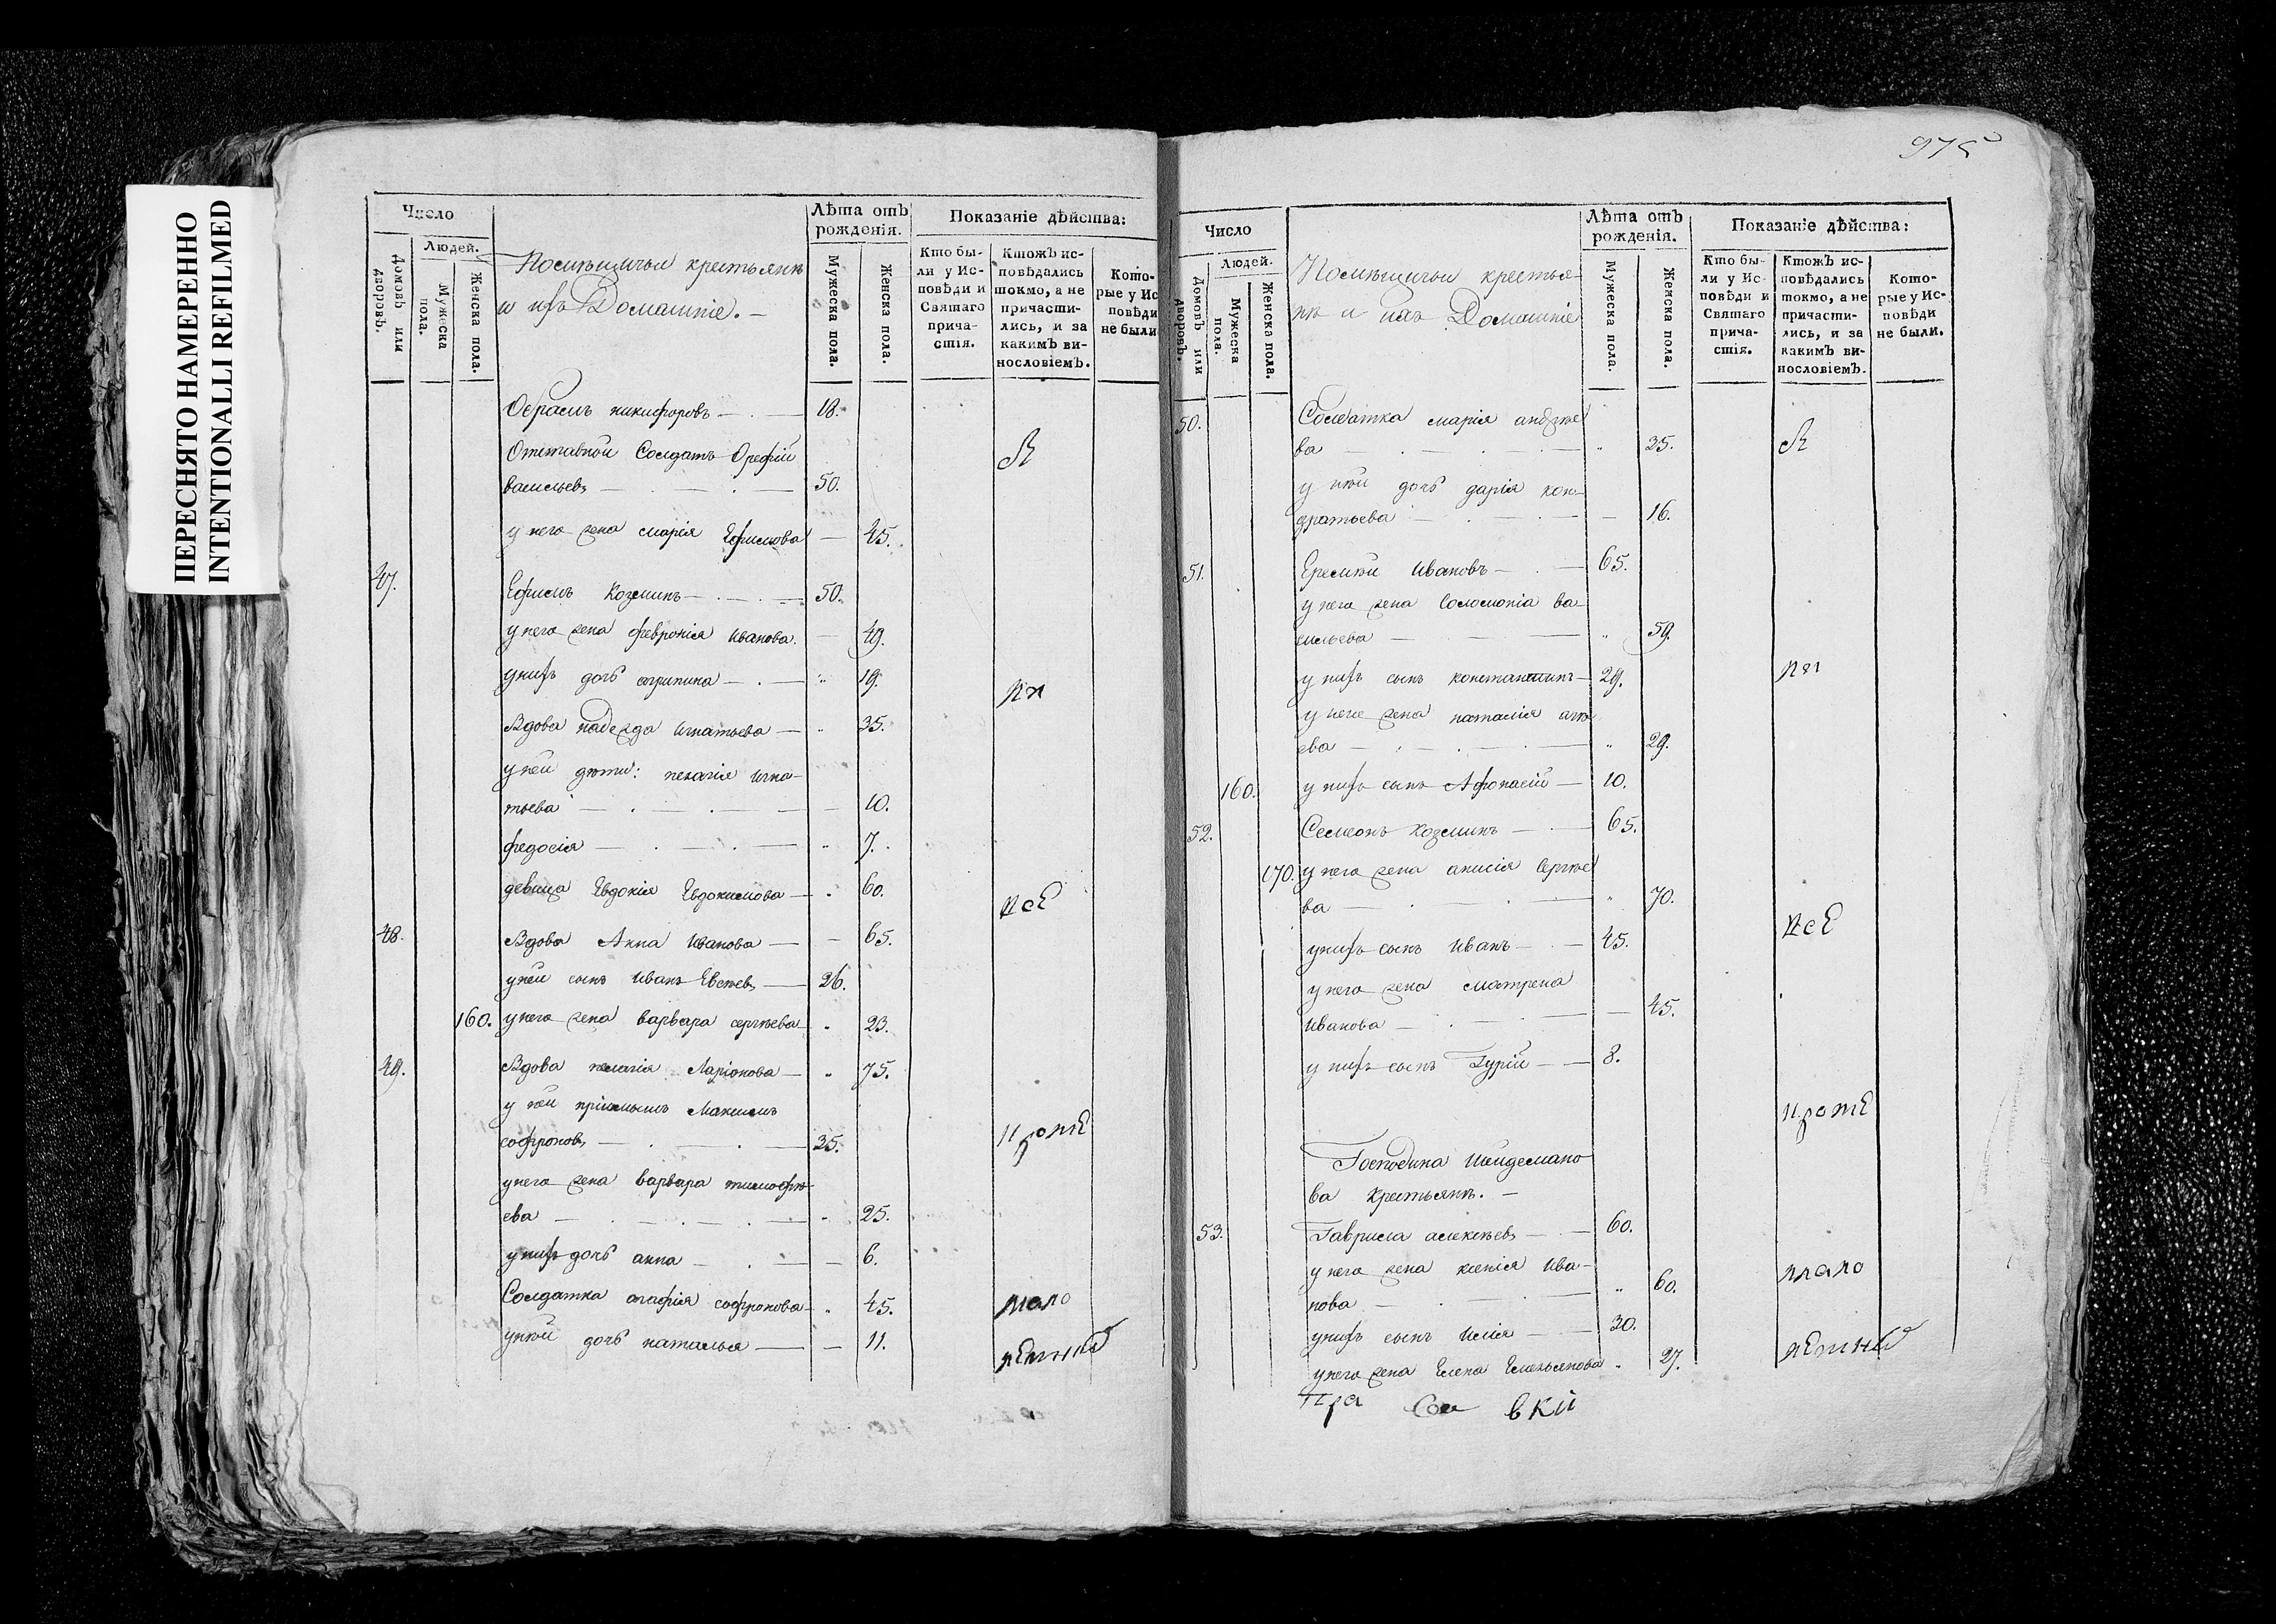 ПЕРЕСНЯТО НАМЕРЕННО
INTENTIONALLI REFILMED
Число
Людей.
Домовъ или дворовъ.
Мужеска пола.
Женска пола.
Помѣщичьи крестьянѣ
и ихъ Домашніе. —
Лѣта отъ рожденія.
Мужеска пола.
Женска пола.
Показаніе дѣйства:
Кто бы-
ли у Ис-
повѣди и
Святаго
прича-
стія.
Ктожъ ис-
повѣдались
токмо, а не
причасти-
лись, и за
какимъ ви-
нословіемъ.
Кото-
рые у Ис
повѣди
не были
Обрамъ никифоровъ — 18.
Отставной Солдатъ Орефій
васильевъ — 50.
у него жена марія Ефимова — 45.
47. Ефимъ Козминъ — 50.
у него жена февронія Иванова. — 49.
у нихъ дочь агрипина — 19.
Вдова надежда игнатьева — 35.
у ней дѣти: пелагія игна-
тьева — 10.
федосія — 7.
девица Евдокія Евдокимова — 60.
48. Вдова Анна Иванова — 65.
у ней сынъ Иванъ Евсѣевъ — 26.
160. у него жена варвара сергѣева — 23.
49. Вдова пелагія Ларіонова — 75.
у ней пріимышъ Максимъ
софроновъ — 35.
у него жена варвара тимофѣ-
ева — 25.
у нихъ дочь анна — 6.
Солдатка агафія софронова — 45.
у ней дочь наталья — 11.
975
Число
Людей.
Домовъ или дворовъ.
Мужеска пола.
Женска пола.
Помѣщичьи крестья-
нѣ и ихъ Домашніе
Лѣта отъ рожденія.
Мужеска пола.
Женска пола.
Показаніе дѣйства:
Кто бы-
ли у Ис-
повѣди и
Святаго
прича-
стія.
Ктожъ ис-
повѣдались
токмо, а не
причасти-
лись, и за
какимъ ви-
нословіемъ.
Кото-
рые у Ис-
повѣди
не были.
50. Солдатка марія андрѣе
ва — 35.
у ней дочь дарія кон-
дратьева — 16.
51. Еремѣй Ивановъ — 65.
у него жена Соломонія ва-
сильева — 59.
у нихъ сынъ константинъ — 29.
у него жена наталія
ева — 29.
160. у нихъ сынъ Афонасій — 10.
52. Семионъ Козминъ — 65.
170. у него жена анисія Сергѣе
ва — 70.
у нихъ сынъ Иванъ — 45.
у него жена матрена
Иванова — 45.
у нихъ сынъ Гурій — 8.
Господина
ва Крестьянѣ. —
53. Гаврила алексѣевъ — 60.
у него жена ксенія Ива-
нова — 60.
у нихъ сынъ Илія — 30.
у него жена Елена Емельянова 27.